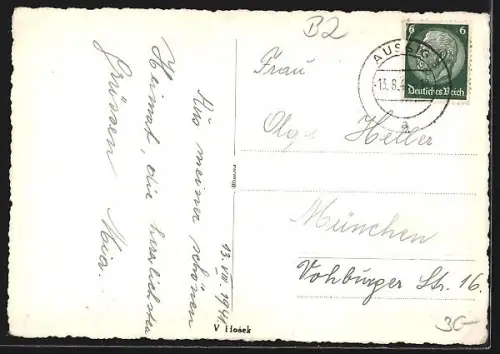 B2
13. VIII. 1941.
Aus meiner schönen
Heimat, die herzlichsten
Grüssen Mia.
V Hošek
6 6
Deutsches Reich
AUSSIG
-13.8.4
a
Frau
Olga Heller
München
Vohburger Str. 16.